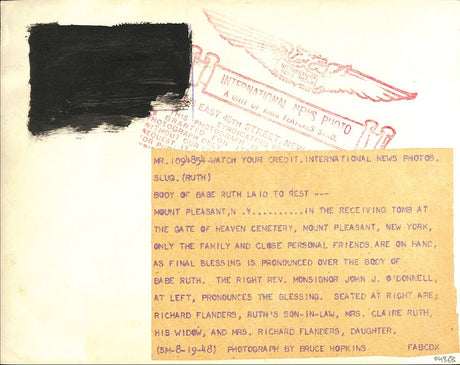 INTERNATIONAL NEWS PHOTO
A UNIT OF KING FEATURES SYND.
EAST 45TH STREET NEW
MR.1094854.WATCH YOUR CREDIT.INTERNATIONAL NEWS PHOTOS.
SLUG.(RUTH)
BODY OF BABE RUTH LAID TO REST ---
MOUNT PLEASANT,N .Y..........IN THE RECEIVING TOMB AT
THE GATE OF HEAVEN CEMETERY, MOUNT PLEASANT, NEW YORK,
ONLY THE FAMILY AND CLOSE PERSONAL FRIENDS.ARE ON HAND,
AS FINAL BLESSING IS PRONOUNCED OVER THE BODY OF
BABE RUTH. THE RIGHT REV. MONSIGNOR JOHN J. O'DONNELL,
AT LEFT, PRONOUNCES THE BLESSING. SEATED AT RIGHT ARE;
RICHARD FLANDERS, RUTH'S SON-IN-LAW, MRS. CLAIRE RUTH,
HIS WIDOW, AND MRS. RICHARD FLANDERS, DAUGHTER.
(SM-8-19-48) PHOTOGRAPH BY BRUCE HOPKINS FABCDX